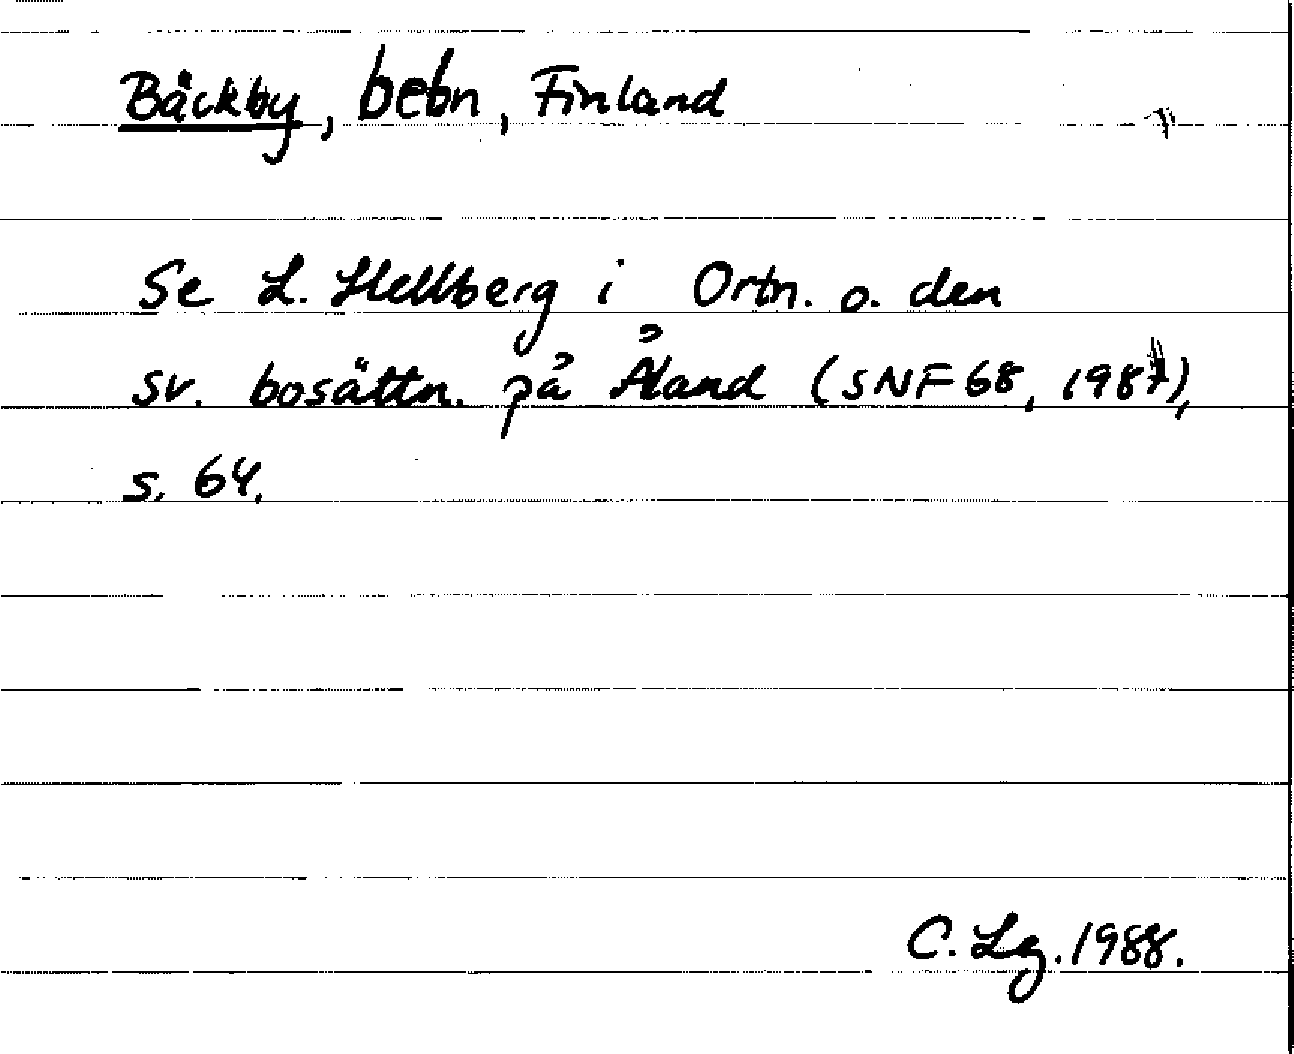 Bäckby, bebn, Finland
Se L. Hellberg i Ortn. o. den
sv. bosättn. på Åland (SNF 68, 1987),
s. 64.
C. Lg. 1988.